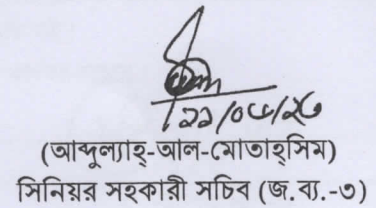 ২১/০৬/২৩
(আব্দুল্যাহ্-আল-মোতাহ্সিম)
সিনিয়র সহকারী সচিব (জ.ব্য.-৩)